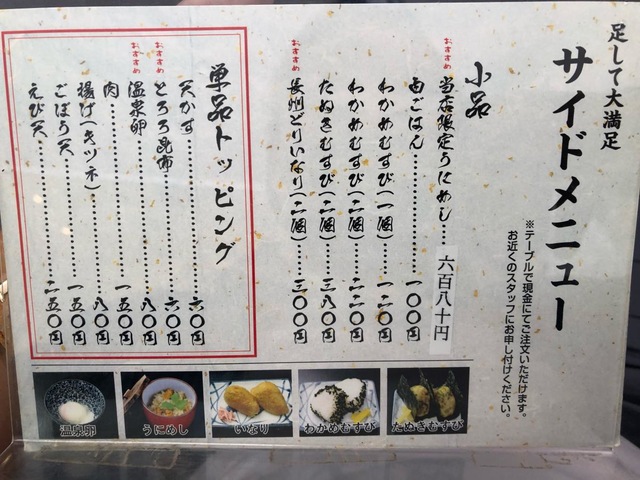 足して大満足
サイドメニュー
※テーブルで現金にてご注文いただけます。
お近くのスタッフにお申し付けください。
小品
おすすめ
当店限定うにめし… 六百八十円
白ごはん……一〇〇円
わかめむすび(一個)……一二〇円
わかめむすび(二個)……二二〇円
たぬきむすび(二個)……三八〇円
おすすめ
長州どりいなり(二個)……三〇〇円
単品トッピング
天かす……六〇円
おすすめ
とろろ昆布……六〇円
おすすめ
温泉卵……八〇円
肉……一五〇円
揚げ(キツネ)……八〇円
ごぼう天……一五〇円
えび天……二五〇円
温泉卵
うにめし
いなり
わかめむすび
たぬきむすび